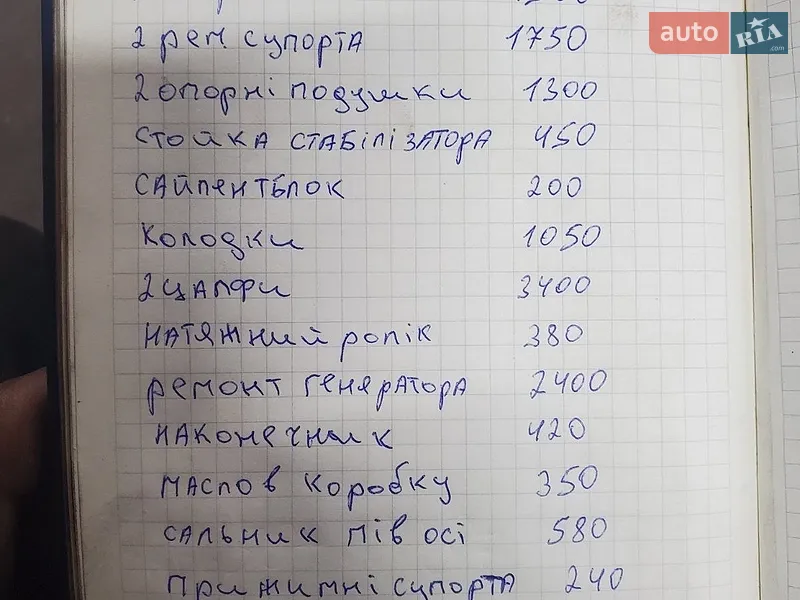 auto RIA .com
2 рем. супорта 1750
2 опорні подушки 1300
стойка стабілізатора 450
сайлентблок 200
колодки 1050
2 цапфи 3400
натяжний ролік 380
ремонт генератора 2400
наконечник 420
масло в коробку 350
сальник пів осі 580
прижимні супорта 240